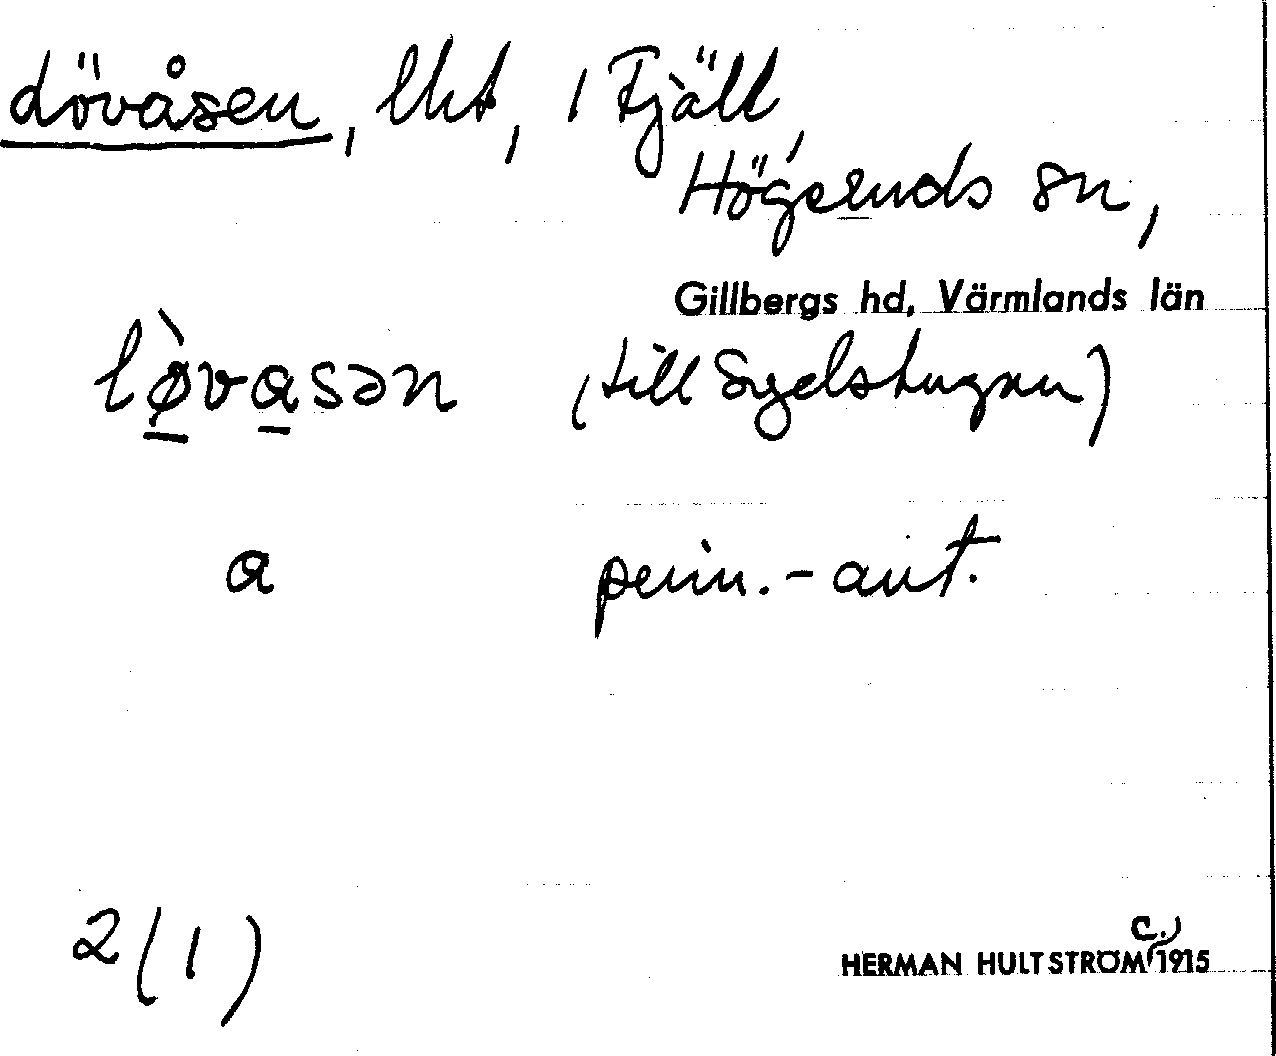 dövåsen, lht, i Fjäll,
Högeruds sn,
Gillbergs hd, Värmlands län
lø̀vasən (till Sgelstugan)
a perm.-ant.
2(1)
c.)
HERMAN HULTSTRÖM 1915